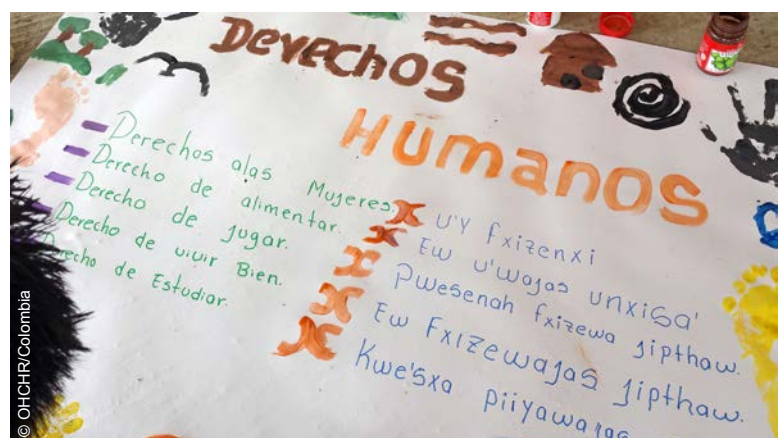 Derechos
Humanos
Derechos alas Mujeres.
Derecho de alimentar.
Derecho de jugar.
Derecho de vivir Bien.
Derecho de Estudiar.
U'Y fxizenxi
Ew u'wajas unxisa'
Pwesenah fxizewa jipthaw.
Ew Fxizewajas jipthaw.
Kwe'sxa piiyawajas
© OHCHR/Colombia